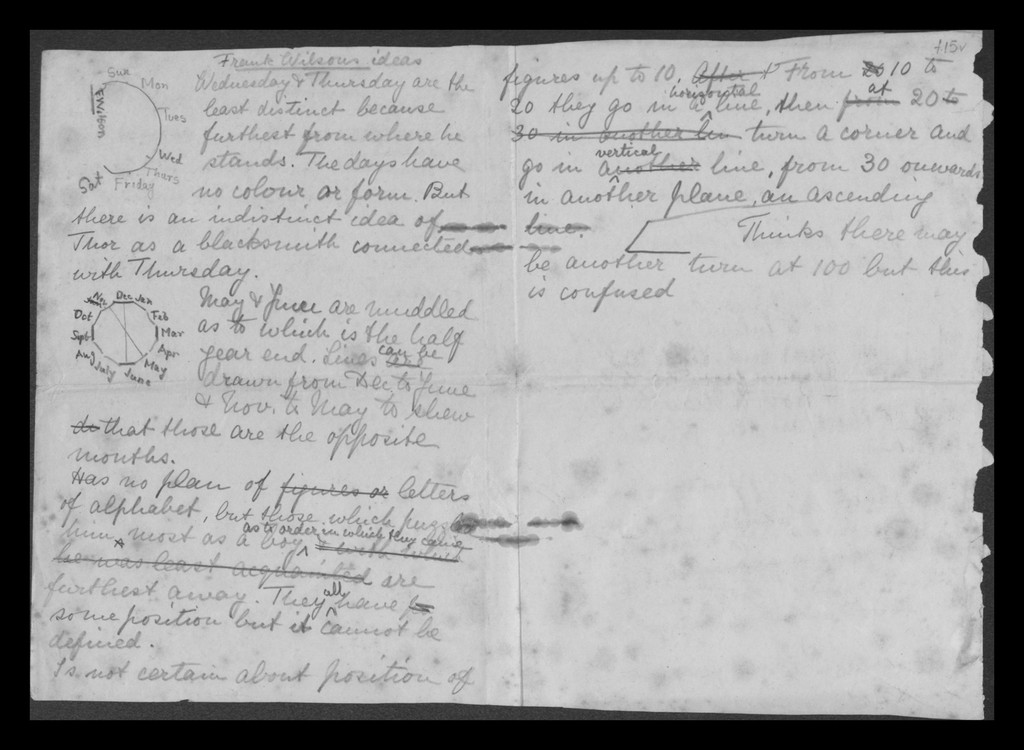 f.15v
Frank Wilsons ideas
Sun
Mon
Tues
Wed
Thurs
Friday
Sat
F Wilson
Wednesday & Thursday are the
least distinct because
furthest from where he
stands. The days have
no colour or form. But
there is an indistinct idea of
Thor as a blacksmith connected
with Thursday.
Dec Jan
Feb
Mar
Apr
May
June
July
Aug
Sept
Oct
Nov
May & June are muddled
as to which is the half
year end. Lines can be
drawn from Dec to June
& Nov. to May to shew
do that those are the opposite
months.
Has no plan of figures or letters
of alphabet, but those which puzzled
him most as a boy as to order in which they came
he was least acquainted are
furthest away. They all have
some position but it cannot be
defined.
Is not certain about position of
figures up to 10. After & From 20 10 to
20 they go in a horizontal line, then from at 20 to
30 in another lin turn a corner and
go in another vertical line, from 30 onwards
in another plane, an ascending
line.
Thinks there may
be another turn at 100 but this
is confused